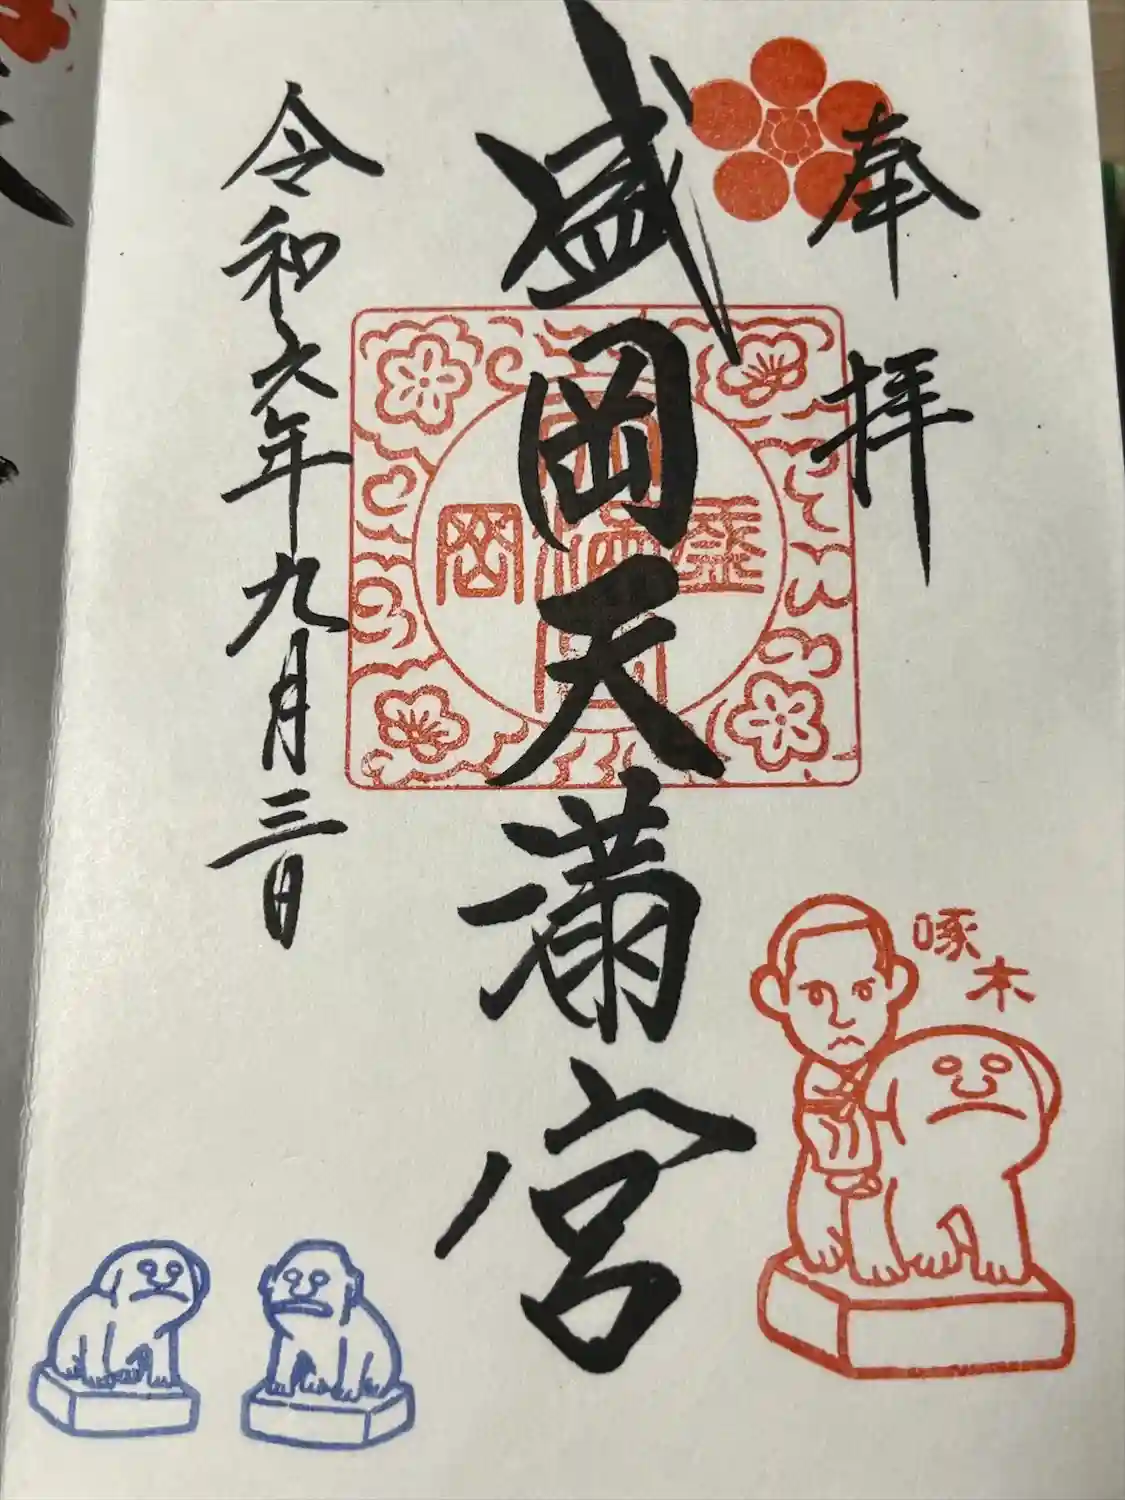 奉拝
盛岡天満宮
令和六年九月三日
啄木